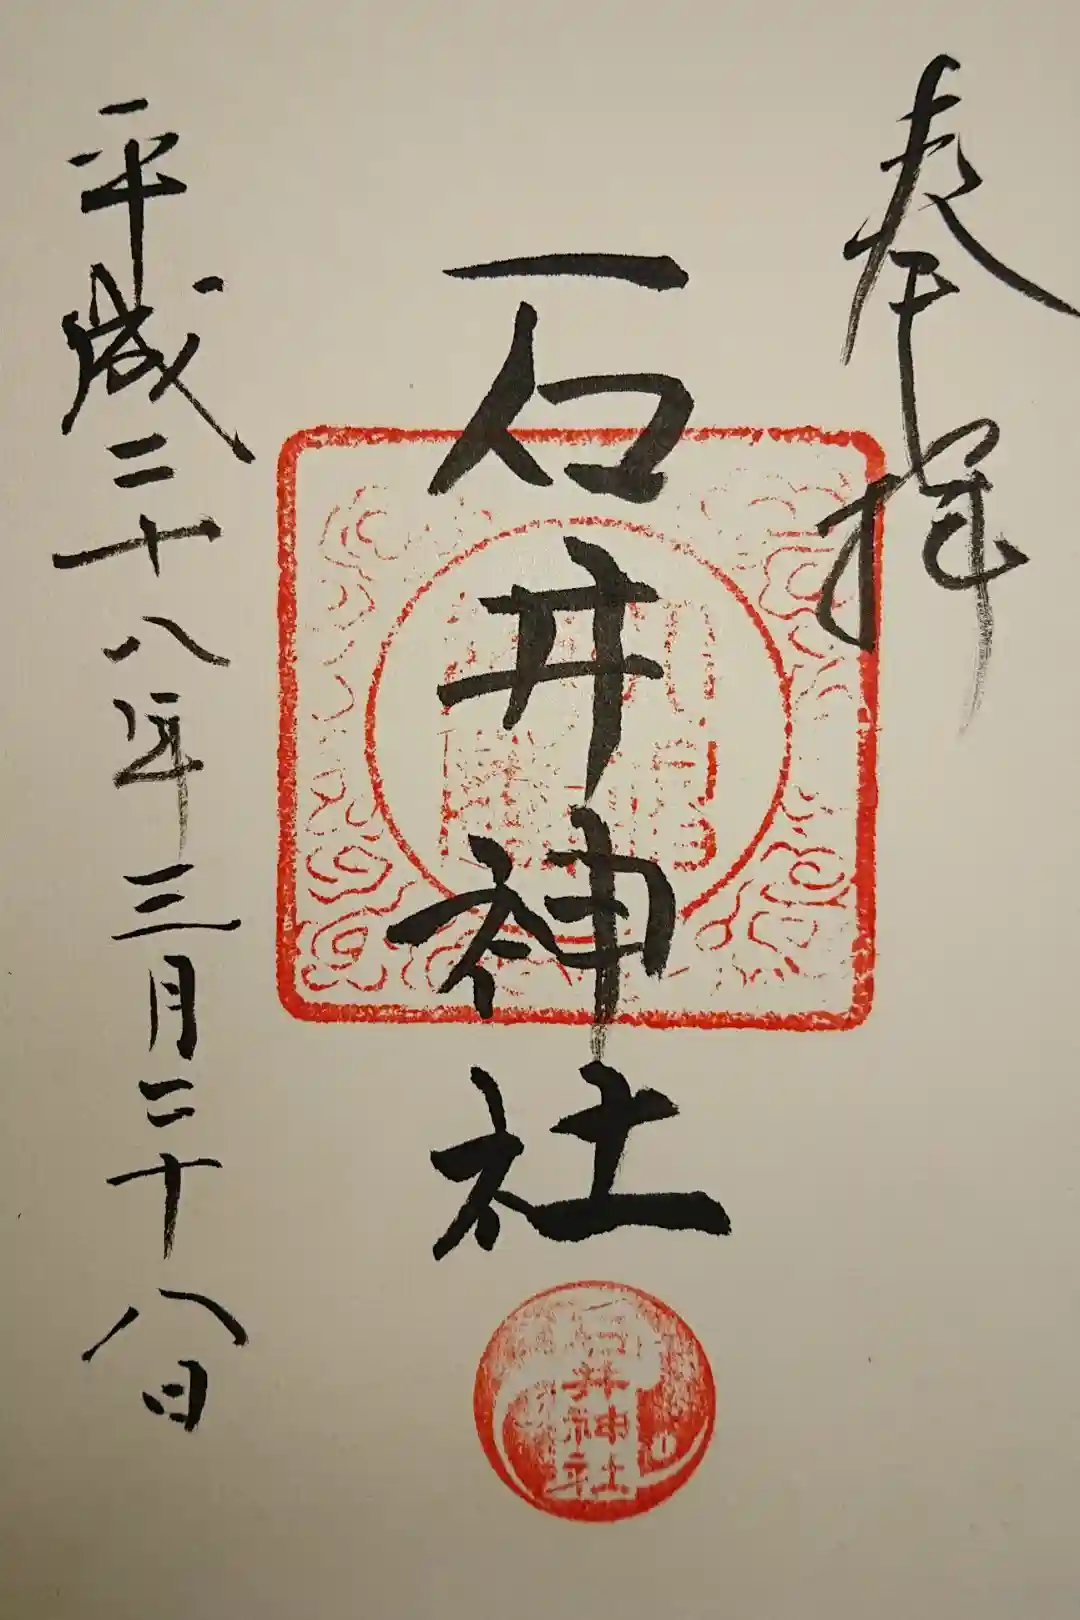 奉拝
石井神社
平成二十八年三月二十八日
石井神社